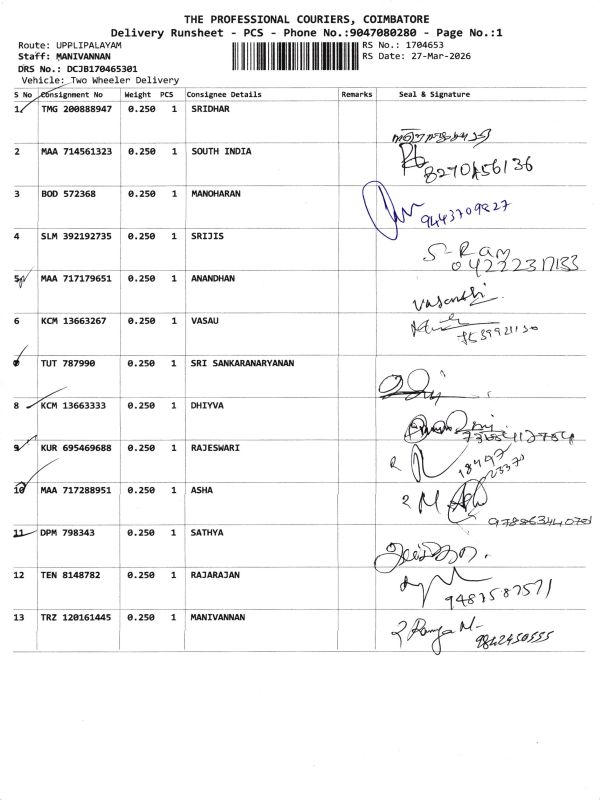 THE PROFESSIONAL COURIERS, COIMBATORE
Delivery Runsheet - PCS - Phone No.:9047080280 - Page No.:1
Route: UPPLIPALAYAM RS No.: 1704653
Staff: MANIVANNAN RS Date: 27-Mar-2026
DRS No.: DCJB170465301
Vehicle: Two Wheeler Delivery
S No Consignment No Weight PCS Consignee Details Remarks Seal & Signature
1 TMG 200888947 0.250 1 SRIDHAR
2 MAA 714561323 0.250 1 SOUTH INDIA
8270456136
3 BOD 572368 0.250 1 MANOHARAN
9443709827
4 SLM 392192735 0.250 1 SRIJIS
S-Ram
04222317133
5 MAA 717179651 0.250 1 ANANDHAN
Vasanthi
6 KCM 13663267 0.250 1 VASAU
7 TUT 787990 0.250 1 SRI SANKARANARYANAN
8 KCM 13663333 0.250 1 DHIYVA
9 KUR 695469688 0.250 1 RAJESWARI
10 MAA 717288951 0.250 1 ASHA
11 DPM 798343 0.250 1 SATHYA
12 TEN 8148782 0.250 1 RAJARAJAN
9487587571
13 TRZ 120161445 0.250 1 MANIVANNAN
9842450555